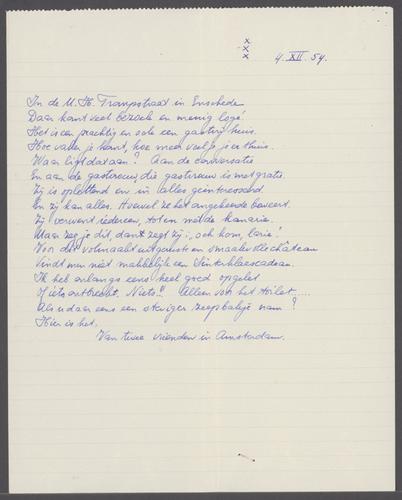 x
x
x
4. XII. 54.
In de M. H. Trompstraat in Enschede
Daar komt veel bezoek en menig logé.
Het is een prachtig en ook een gastvrij huis.
Hoe vaker je komt, hoe meer voel je je er thuis.
Waar ligt dat aan? Aan de conversatie
En aan de gastvrouw, die gastvrouw is met gratie.
Zij is oplettend en in alles geïnteresseerd
En zij kan alles. Hoewel ze het aangeboden
Zij verwent iedereen, tot en met de kanarie.
Maar zeg je dit, dan zegt zij: „och kom, larie!"
Voor dit volmaakt en smaakvolle château
Vindt men niet makkelijk een Sinterklaascadeau.
Ik heb onlangs eens heel goed opgelet
Of iets ontbreekt. Niets!! Alleen voor het toilet....
Als u daar eens een steviger zeepbakje nam?
Hier is het.
Van twee vrienden in Amsterdam.